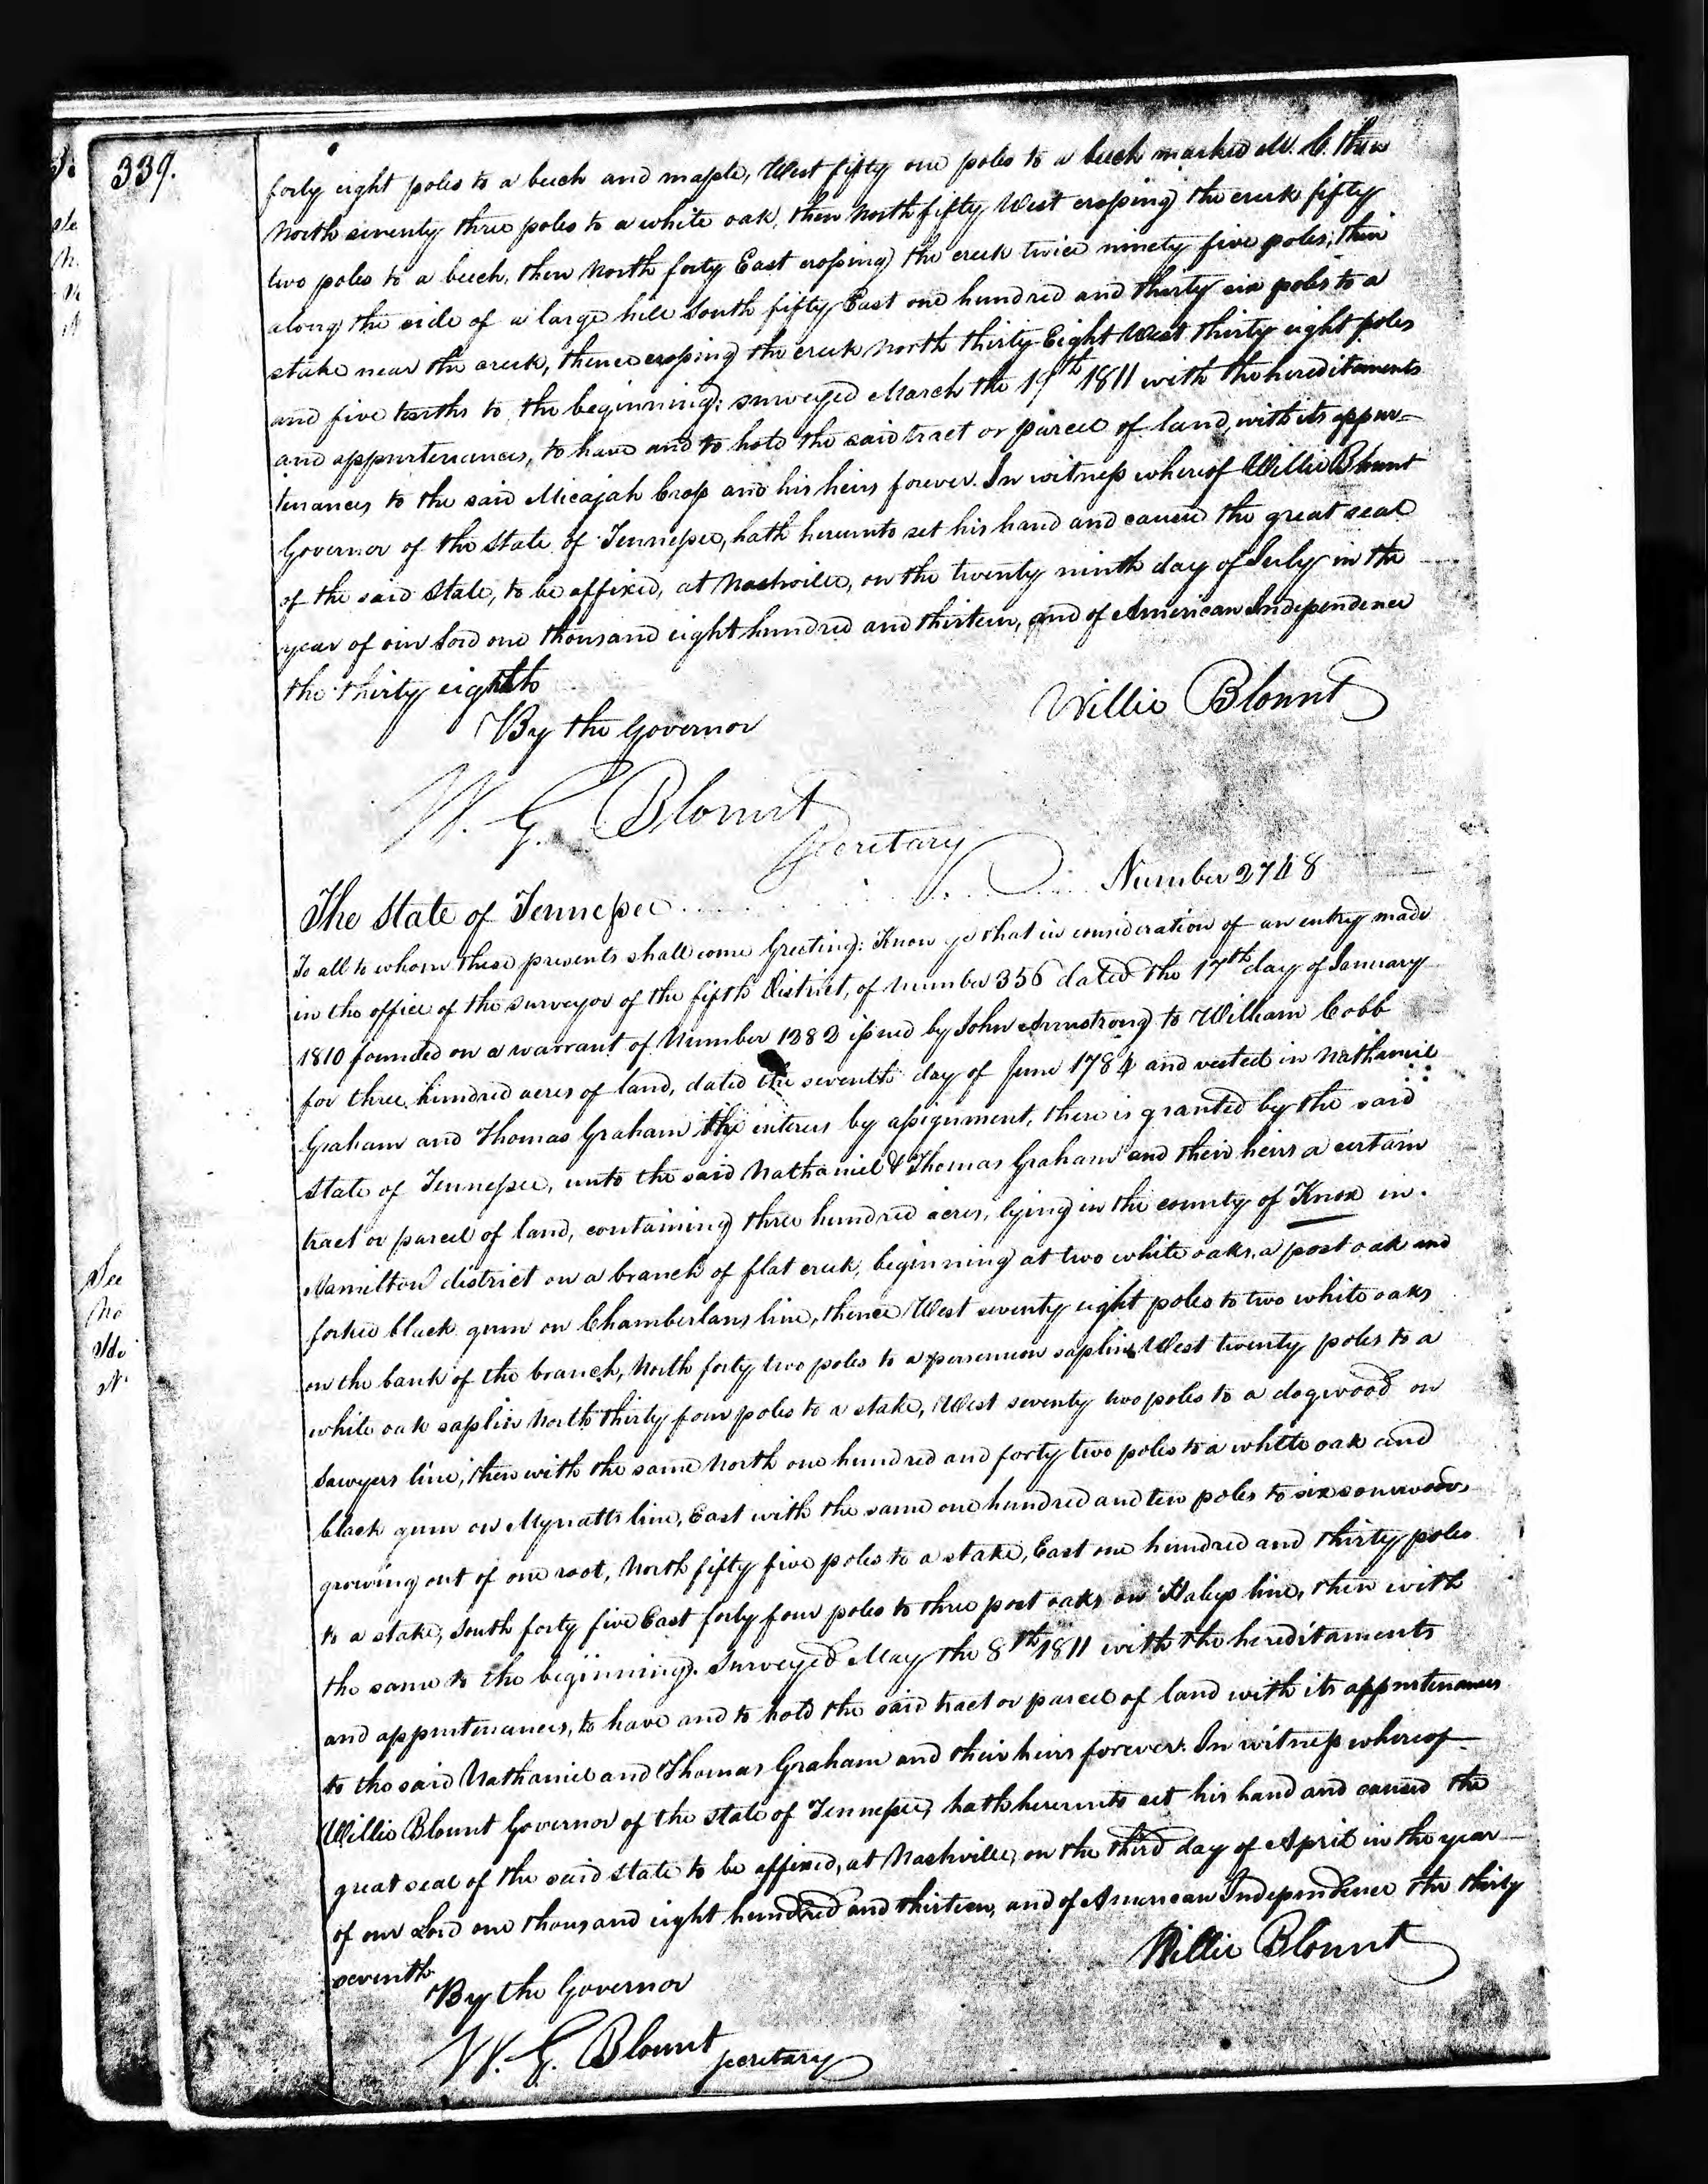 339.
forty eight poles to a beech and maple, West fifty one poles to a beech marked M. C. then
North seventy three poles to a white oak, then North fifty West crossing the creek fifty
two poles to a beech, then North forty East crossing the creek twice ninety five poles; then
along the side of a large hill South fifty East one hundred and thirty six poles to a
stake near the creek, thence crossing the creek North thirty Eight West thirty eight poles
and five tenths to the beginning; surveyed March the 19th 1811 with the hereditaments
and appurtenances, to have and to hold the said tract or parcel of land, with its appur-
tenances to the said Micajah Cross and his heirs forever. In witness whereof Willie Blount
Governor of the State of Tennessee, hath hereunto set his hand and caused the great seal
of the said State, to be affixed, at Nashville, on the twenty ninth day of July in the
year of our Lord one thousand eight hundred and thirteen, and of American Independence
the thirty eighth
Willie Blount
By the Governor
W. G. Blount
Secretary
The State of Tennessee Number 2748
To all to whom these presents shall come Greeting: Know ye that in consideration of an entry made
in the office of the surveyor of the fifth District, of Number 356 dated the 17th day of January
1810 founded on a warrant of Number 1282 issued by John Armstrong to William Cobb
for three hundred acres of land, dated the seventh day of June 1784 and vested in Nathaniel
Graham and Thomas Graham the interess by assignment, there is granted by the said
State of Tennessee, unto the said Nathaniel & Thomas Graham and their heirs a certain
tract or parcel of land, containing three hundred acres, lying in the county of Knox in
Hamilton district on a branch of flat creek, beginning at two white oaks, a post oak and
forked black gum on Chamberlans line, thence West seventy eight poles to two white oaks
on the bank of the branch, North forty two poles to a persemon saplin West twenty poles to a
white oak saplin North thirty four poles to a stake, West seventy two poles to a dogwood on
Sawyers line, then with the same North one hundred and forty two poles to a white oak and
black gum on Mynatts line, East with the same one hundred and ten poles to six sourwoods
growing out of one root, North fifty five poles to a stake, East one hundred and thirty poles
to a stake; South forty five East forty four poles to three post oaks on line, then with
the same to the beginning. Surveyed May the 8th 1811 with the hereditaments
and appurtenances, to have and to hold the said tract or parcel of land with its appurtenances
to the said Nathaniel and Thomas Graham and their heirs forever. In witness whereof
Willie Blount Governor of the State of Tennessee, hath hereunto set his hand and caused the
great seal of the said State to be affixed, at Nashville, on the third day of April in the year
of our Lord one thousand eight hundred and thirteen, and of American Independence the thirty
seventh
Willie Blount
By the Governor
W. G. Blount Secretary